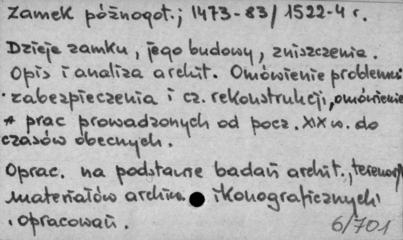 Zamek późnogot.; 1473-83/1522-4 r.
Dzieje zamku, jego budowy, zniszczenia.
Opis i analiza archit. Omówienie problemu
zabezpieczenia i cz. rekonstrukcji, omówienie
prac prowadzonych od pocz. XIX w. do
czasów obecnych.
Oprac. na podstawie badań archit., terenow,
materiałów archiw. ikonograficznych i
opracowań.
6/701